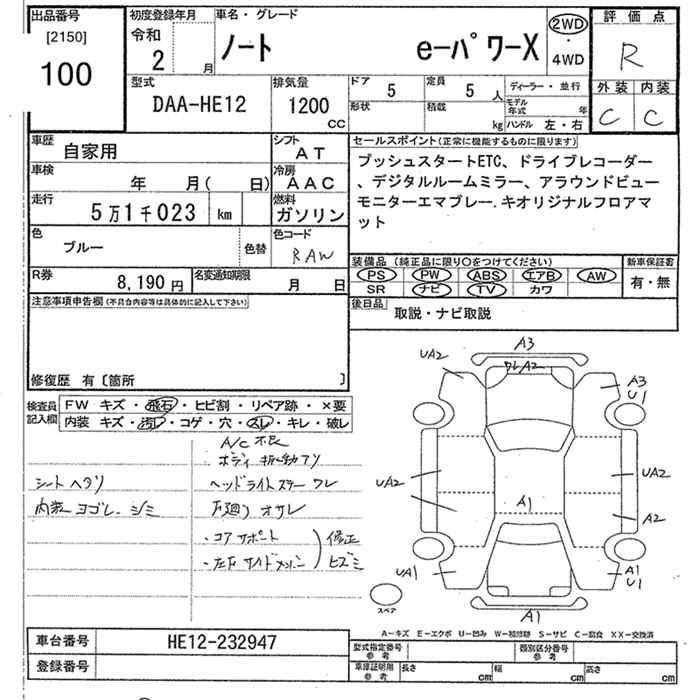 出品番号
[2150]
100
初度登録年月
令和
2 月
車名・グレード
ノート e-パワーX
2WD
・
4WD
評価点
R
外装 内装
C C
型式
DAA-HE12
排気量
1200
CC
ドア
5
定員
5 人
形状
積載
kg
ディーラー・並行
モデル
年式 年
ハンドル 左・右
車歴
自家用
シフト
AT
車検
年 月( 日)
冷房
AAC
走行
5万1千023 km
燃料
ガソリン
色
ブルー
色替
色コード
RAW
R券
8,190 円
名変通知期限
月 日
セールスポイント(正常に機能するものに限ります)
プッシュスタートETC、ドライブレコーダー
、デジタルルームミラー、アラウンドビュー
モニターエマブレー.キオリジナルフロアマ
ット
装備品(純正品に限り〇をつけてください)
PS PW ABS エアB AW
SR ナビ TV カワ
新車保証書
有・無
後日品
取説・ナビ取説
注意事項申告欄(不具合内容等は具体的に記入して下さい)
修復歴 有〔箇所 〕
検査員
記入欄
FW キズ・飛石・ヒビ割・リペア跡・×要
内装 キズ・汚レ・コゲ・穴・スレ・キレ・破レ
A/C 不良
ボディ振動アリ
シートヘタリ
ヘッドライトステー ワレ
内装 ヨゴレ. シミ
下廻り オサレ
・コア サポート
・左F サイドメンバー
修正
ヒズミ
A3
UA2
ワレA2
A3
U1
UA2
UA2
A1
A2
UA1
A1
U1
スペア
A1
A－キズ E－エクボ U－凹み W－補修跡 S－サビ C－腐食 XX－交換済
車台番号
HE12-232947
登録番号
型式指定番号
参考
類別区分番号
参考
車庫証明用
参考
長さ cm
幅 cm
高さ cm